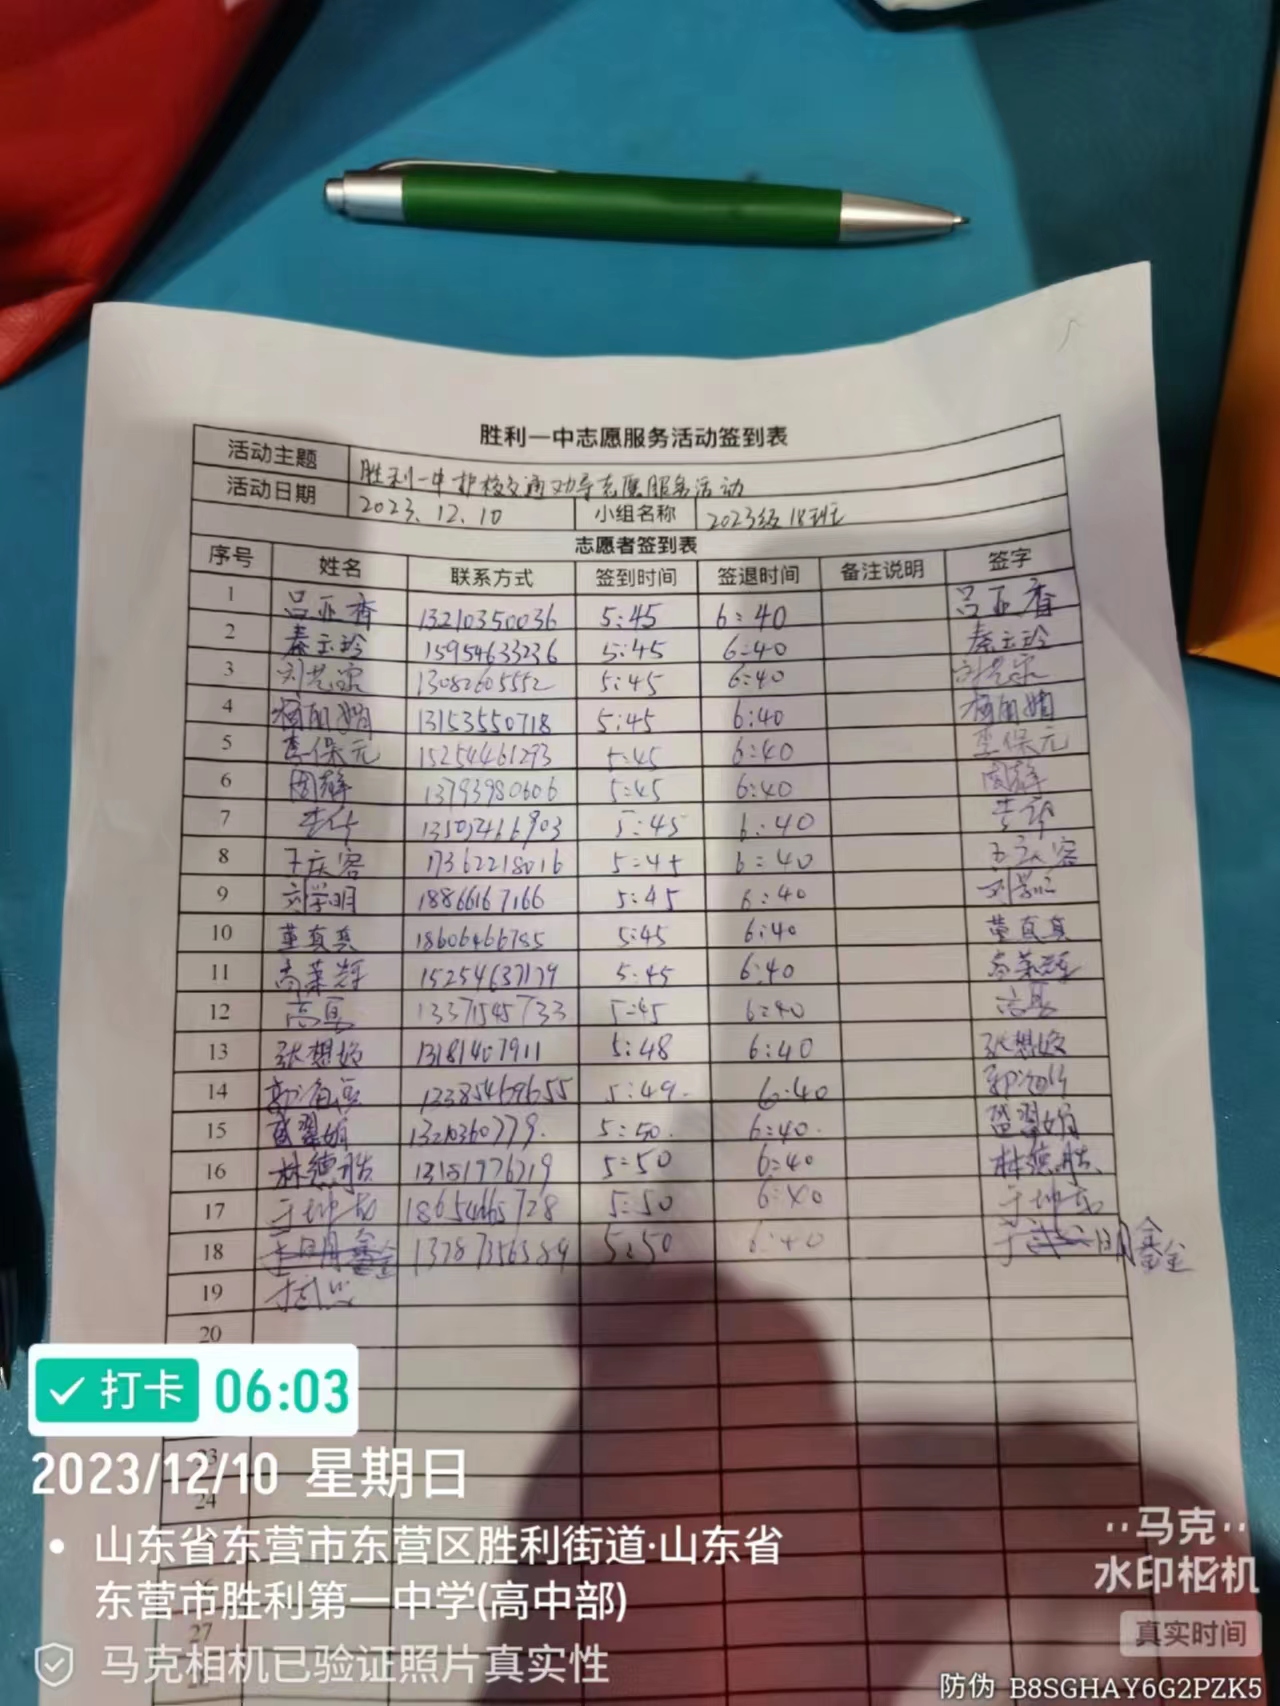 胜利一中志愿服务活动签到表
活动主题 胜利一中护校交通劝导志愿服务活动
活动日期 2023.12.10 小组名称 2023级18班
志愿者签到表
序号 姓名 联系方式 签到时间 签退时间 备注说明 签字
1 吕亚香 13210350036 5:45 6:40 吕亚香
2 秦玉玲 15954633236 5:45 6:40 秦玉玲
3 13082605552 5:45 6:40
4 杨丽娟 13153550718 5:45 6:40 杨丽娟
5 李保元 15254461293 5:45 6:40 李保元
6 周静 13793980606 5:45 6:40 周静
7 5:45 6:40
8 17362218016 5:45 6:40
9 刘学明 18866167166 5:45 6:40 刘学明
10 董真真 18606466785 5:45 6:40 董真真
11 高荣辉 15254637179 5:45 6:40 高荣辉
12 13371545733 5:45 6:40
13 张想姣 13181407911 5:48 6:40 张想姣
14 13385469655 5:49 6:40
15 盛翠娟 13210360779 5:50 6:40 盛翠娟
16 林德胜 5:50 6:40 林德胜
17 于坤友 18654665728 5:50 6:40 于坤友
18 13787356389 5:50 6:40
19
20
23
24
27
打卡 06:03
2023/12/10 星期日
山东省东营市东营区胜利街道·山东省
东营市胜利第一中学(高中部)
马克相机已验证照片真实性
马克
水印相机
真实时间
防伪 B8SGHAY6G2PZK5